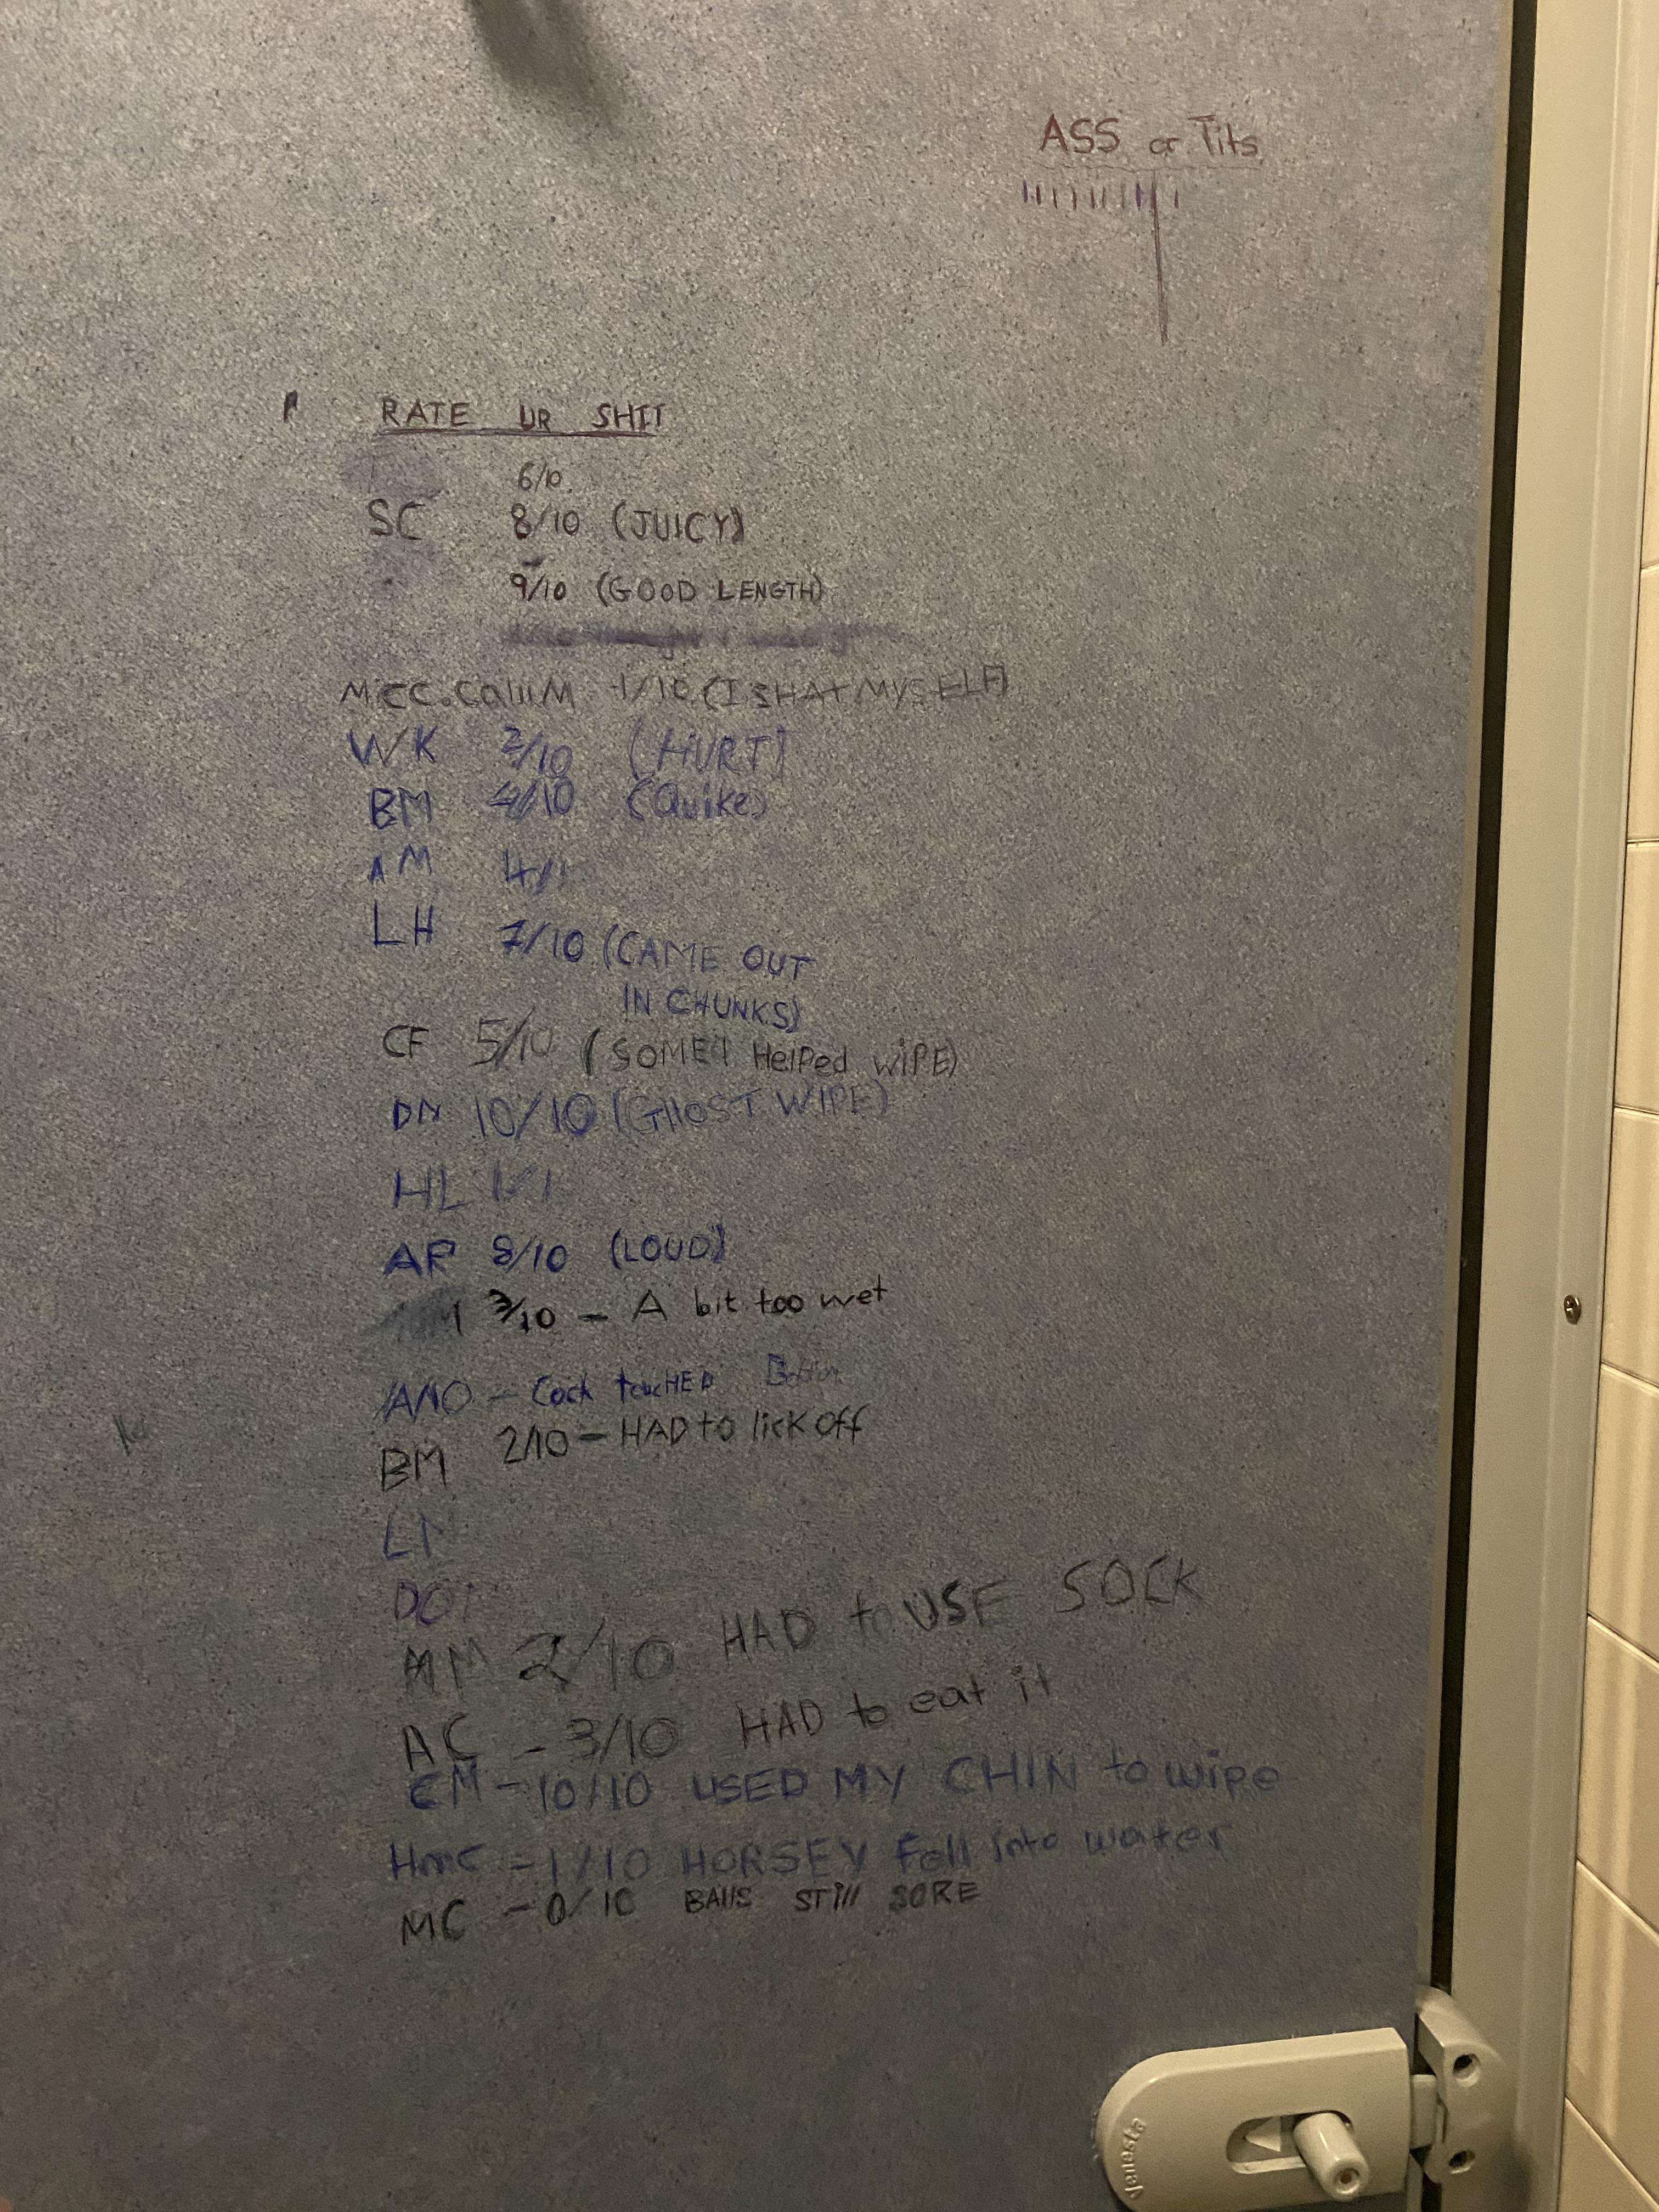 ASS or Tits
RATE UR SHIT
6/10
SC 8/10 (JUICY)
9/10 (GOOD LENGTH)
-1/10 (I SHAT MYSELF)
WK 2/10 (HURT)
BM 4/10 (Quike)
AM 4/1
LH 7/10 (CAME OUT
IN CHUNKS)
CF 5/10 (SOME1 HelPed WiPE)
DN 10/10 (GHOST WIPE)
HL
AP 8/10 (LOUD)
3/10 - A bit too wet
ANO - Cock toucHED
BM 2/10 - HAD to lick off
LN
MM 2/10 HAD to USE SOCK
AC - 3/10 HAD to eat it
CM - 10/10 USED MY CHIN to wipe
HMC - 1/10 HORSEY Fell into water
MC - 0/10 BAllS STill SORE
Venesta